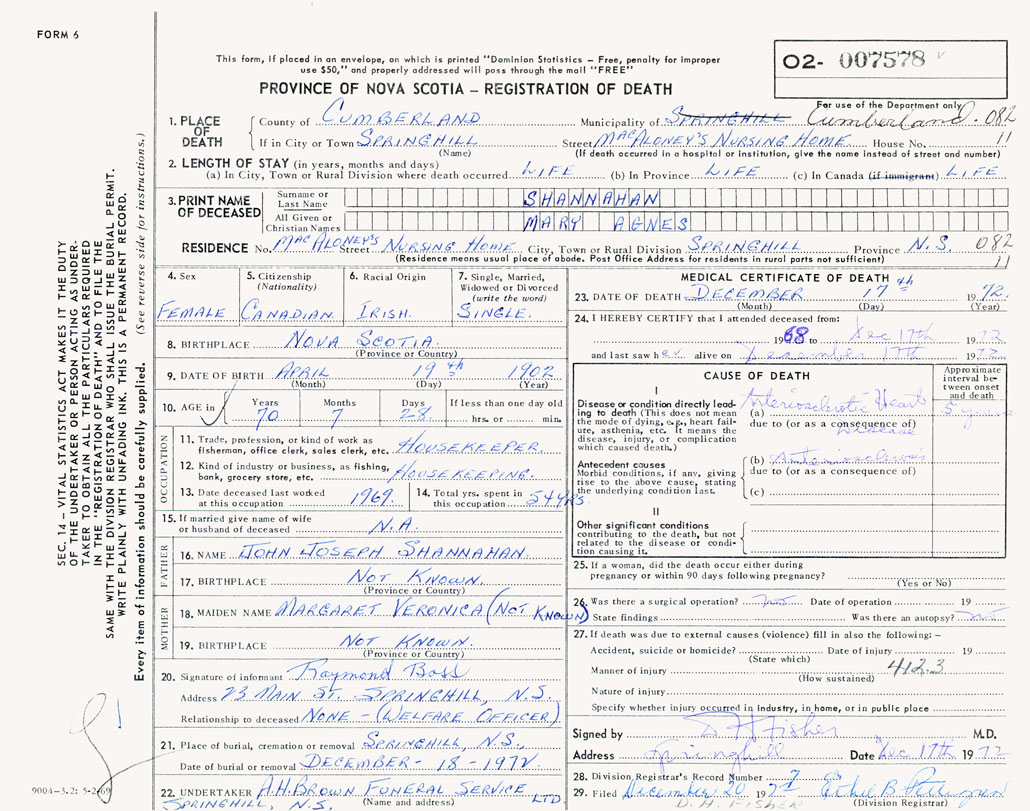 FORM 6
This form, if placed in an envelope, on which is printed "Dominion Statistics – Free, penalty for improper
use $50," and properly addressed will pass through the mail "FREE"
O2- 007578
For use of the Department only
PROVINCE OF NOVA SCOTIA – REGISTRATION OF DEATH
1. PLACE OF DEATH County of CUMBERLAND Municipality of SPRINGHILL Cumberland. 082
If in City or Town SPRINGHILL Street MACALONEY'S NURSING HOME House No. 11
(Name) (If death occurred in a hospital or institution, give the name instead of street and number)
2. LENGTH OF STAY (in years, months and days)
(a) In City, Town or Rural Division where death occurred LIFE (b) In Province LIFE (c) In Canada (if immigrant) LIFE
3. PRINT NAME OF DECEASED Surname or Last Name SHANNAHAN
All Given or Christian Names MARY AGNES
RESIDENCE No. MACALONEY'S Street NURSING HOME City, Town or Rural Division SPRINGHILL Province N.S. 082
(Residence means usual place of abode. Post Office Address for residents in rural parts not sufficient) 11
4. Sex FEMALE
5. Citizenship (Nationality) CANADIAN
6. Racial Origin IRISH.
7. Single, Married, Widowed or Divorced (write the word) SINGLE.
8. BIRTHPLACE NOVA SCOTIA.
(Province or Country)
9. DATE OF BIRTH APRIL 19th 1902
(Month) (Day) (Year)
10. AGE in Years 70 Months 7 Days 28 If less than one day old hrs. or min.
OCCUPATION
11. Trade, profession, or kind of work as fisherman, office clerk, sales clerk, etc. HOUSEKEEPER.
12. Kind of industry or business, as fishing, bank, grocery store, etc. HOUSEKEEPING.
13. Date deceased last worked at this occupation 1969.
14. Total yrs. spent in this occupation 54 YRS.
15. If married give name of wife or husband of deceased N.A.
FATHER
16. NAME JOHN JOSEPH SHANNAHAN.
17. BIRTHPLACE NOT KNOWN.
(Province or Country)
MOTHER
18. MAIDEN NAME MARGARET VERONICA (NOT KNOWN)
19. BIRTHPLACE NOT KNOWN.
(Province or Country)
20. Signature of informant Raymond Boss
Address 23 MAIN ST. SPRINGHILL, N.S.
Relationship to deceased NONE - (WELFARE OFFICER)
21. Place of burial, cremation or removal SPRINGHILL, N.S.,
Date of burial or removal DECEMBER - 18 - 1972
22. UNDERTAKER A.H. BROWN FUNERAL SERVICE LTD
SPRINGHILL, N.S. (Name and address)
MEDICAL CERTIFICATE OF DEATH
23. DATE OF DEATH DECEMBER 17th 1972.
(Month) (Day) (Year)
24. I HEREBY CERTIFY that I attended deceased from:
1968 to Dec 17th 1972
and last saw her alive on December 17th 1972
CAUSE OF DEATH
Approximate interval between onset and death
I
Disease or condition directly leading to death (This does not mean the mode of dying, e.g., heart failure, asthenia, etc. It means the disease, injury, or complication which caused death.)
(a) Arteriosclerotic Heart 5 years
due to (or as a consequence of)
Disease
Antecedent causes
Morbid conditions, if any, giving rise to the above cause, stating the underlying condition last.
(b) Arteriosclerosis
due to (or as a consequence of)
(c)
II
Other significant conditions contributing to the death, but not related to the disease or condition causing it.
25. If a woman, did the death occur either during
pregnancy or within 90 days following pregnancy?
(Yes or No)
26. Was there a surgical operation? no Date of operation 19
State findings Was there an autopsy? no
27. If death was due to external causes (violence) fill in also the following: –
Accident, suicide or homicide? Date of injury 19
(State which)
Manner of injury 412.3
(How sustained)
Nature of injury
Specify whether injury occurred in industry, in home, or in public place
Signed by D H Fisher M.D.
Address Springhill Date Dec 17th 1972
28. Division Registrar's Record Number 7
29. Filed December 20 197
(Division Registrar)
D. H. FISHER
SEC. 14 – VITAL STATISTICS ACT MAKES IT THE DUTY
OF THE UNDERTAKER OR PERSON ACTING AS UNDER-
TAKER TO OBTAIN ALL THE PARTICULARS REQUIRED
IN THE "REGISTRATION OF DEATH" AND TO FILE THE
SAME WITH THE DIVISION REGISTRAR WHO SHALL ISSUE THE BURIAL PERMIT.
WRITE PLAINLY WITH UNFADING INK. THIS IS A PERMANENT RECORD.
Every item of information should be carefully supplied. (See reverse side for instructions.)
9004-3.2: 5-2-69